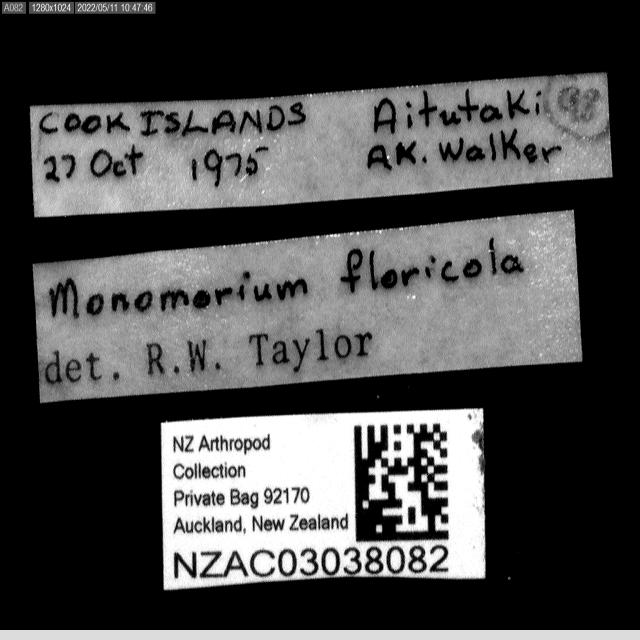 A082 1280x1024 2022/05/11 10:47:46
COOK ISLANDS Aitutaki 98
27 Oct 1975 A.K. Walker
Monomorium floricola
det. R.W. Taylor
NZ Arthropod
Collection
Private Bag 92170
Auckland, New Zealand
NZAC03038082